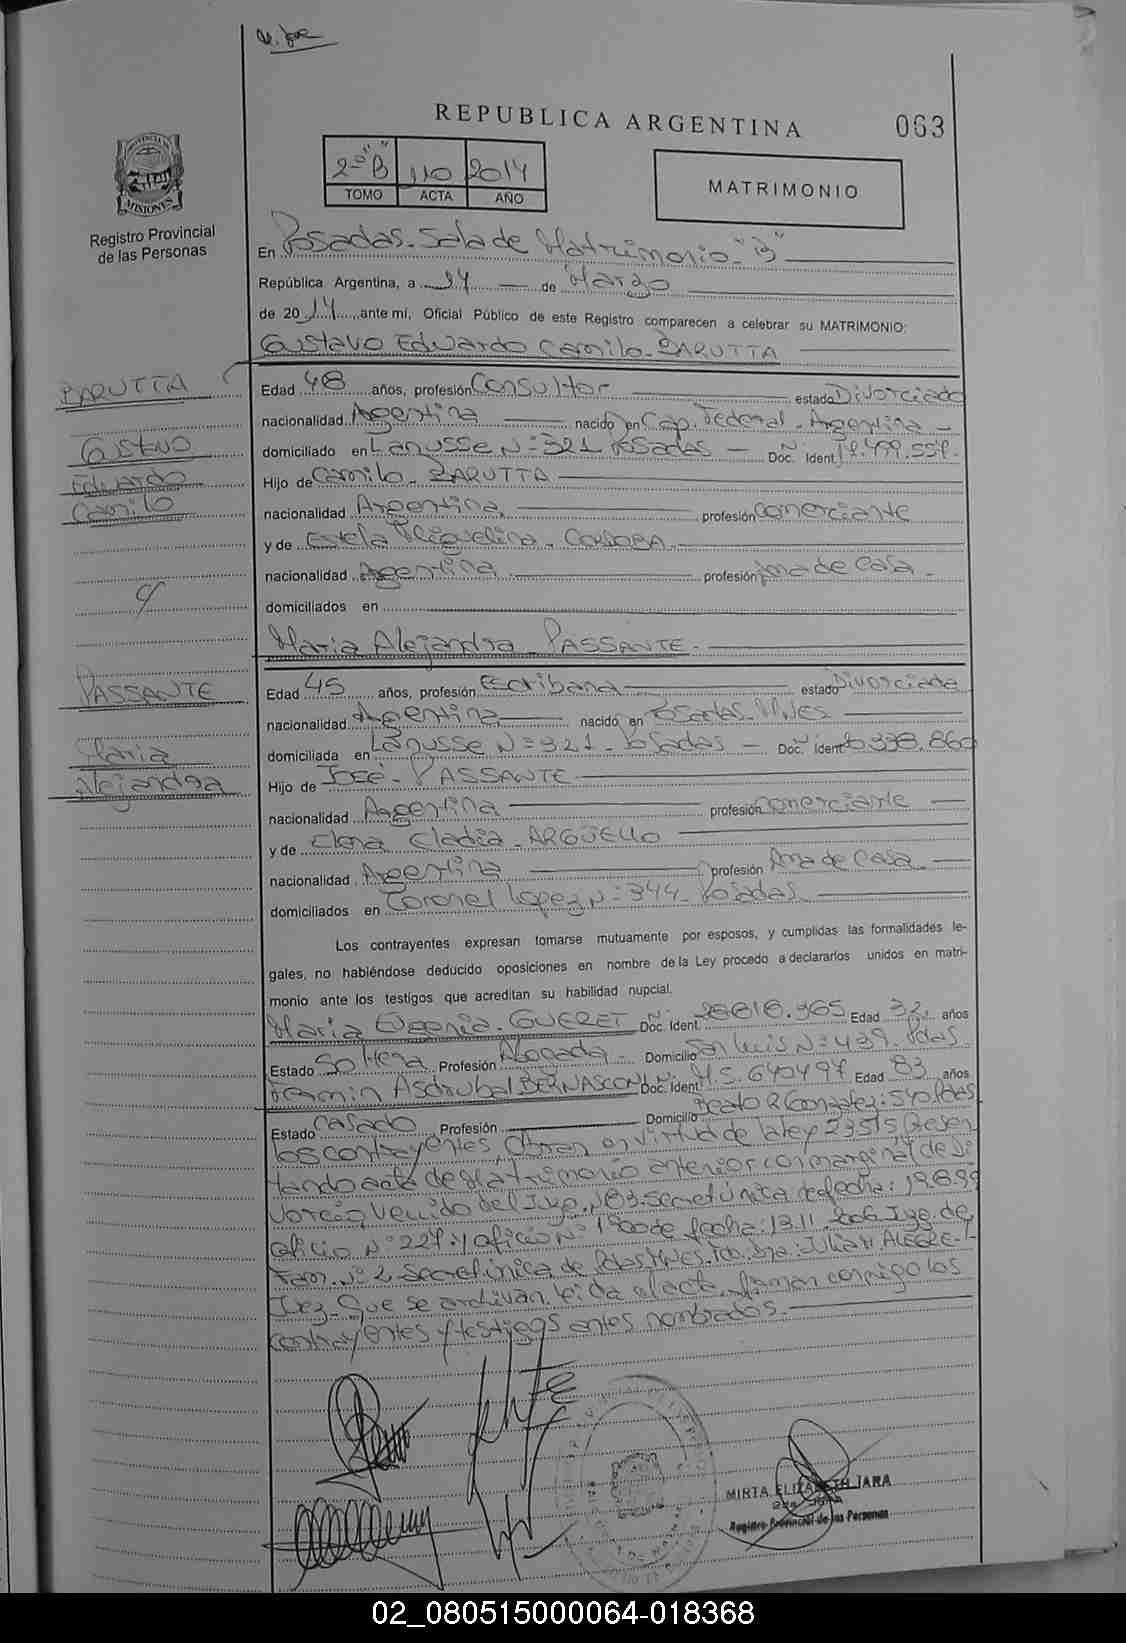 REPUBLICA ARGENTINA
063
2º "B" 110 2014
TOMO ACTA AÑO
MATRIMONIO
MISIONES
Registro Provincial
de las Personas
En Posadas. Sala de Matrimonio "B"
República Argentina, a de Marzo
de 2014, ante mí, Oficial Público de este Registro comparecen a celebrar su MATRIMONIO:
Gustavo Eduardo Camilo. BARUTTA
BARUTTA
Gustavo
Eduardo
Camilo
Edad 48 años, profesión Consultor estado Divorciado
nacionalidad Argentina nacido en Cap. Federal. Argentina
domiciliado en Lanusse Nº 321 Posadas Doc. Ident. 17.499.557.
Hijo de Camilo. BARUTTA
nacionalidad Argentina profesión Comerciante
y de Estela Miguelina. CORDOBA
nacionalidad Argentina profesión Ama de Casa
domiciliados en
Maria Alejandra PASSANTE
c/
PASSANTE
Maria
Alejandra
Edad 45 años, profesión Escribana estado Divorciada
nacionalidad Argentina nacido en Posadas. Mnes
domiciliada en Lanusse Nº 321. Posadas Doc. Ident. 338.860
Hijo de José. PASSANTE
nacionalidad Argentina profesión Comerciante
y de Elena Cladia. ARGÜELLO
nacionalidad Argentina profesión Ama de Casa
domiciliados en Coronel Lopez Nº 344. Posadas
Los contrayentes expresan tomarse mutuamente por esposos, y cumplidas las formalidades le-
gales, no habiéndose deducido oposiciones en nombre de la Ley procedo a declararlos unidos en matri-
monio ante los testigos que acreditan su habilidad nupcial.
Maria Eugenia. GUERET Doc. Ident. 28616.965 Edad 32 años
Estado Soltera Profesión Abogada Domicilio San Luis Nº 439. Pdas.
Fermin Asdrubal BERNASCONI Doc. Ident. M.S. 640497 Edad 83 años
Estado Casado Profesión Domicilio Beato R Gonzalez: 540 Pdas
Los contrayentes, Obran en virtud de la ley 23515 Presen
tando acta de Matrimonio anterior con marginal de Di
vorcio, Venido del Juzg. Nº 3. Secret Única de fecha: 19.8.99
oficio Nº 227. y oficio Nº 1900 de fecha: 13.11.2006 Jzg. de
Fam. Nº 2 Secret única de Pdas Mnes. Fdo. Dra.: Julia ALEGRE
Juez. Que se archivan. leída el acta, firman conmigo los
contrayentes y testigos antes nombrados.
MIRTA ELIZABETH JARA
Registro Provincial de las Personas
02_080515000064-018368